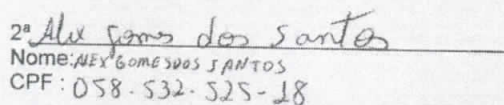 2ª Alex Gomes dos Santos
Nome: ALEX GOMES DOS SANTOS
CPF : 058.532.525-18